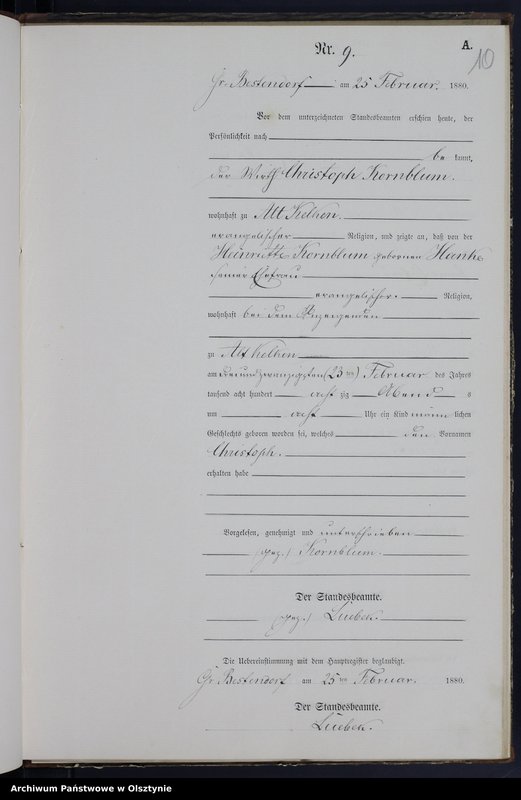 Nr. 9.
A.
10
Gr. Bestendorf am 25 Februar. 1880.
Vor dem unterzeichneten Standesbeamten erschien heute, der
Persönlichkeit nach
be kannt,
der Wirth Christoph Kornblum.
wohnhaft zu Alt Kelken.
evangelischer Religion, und zeigte an, daß von der
Heinriette Kornblum geborenen Hanke
seiner Ehefrau
evangelischer Religion,
wohnhaft bei dem Anzeigenden
zu Alt Kelken
am dreiundzwanzigsten (23ten) Februar des Jahres
tausend acht hundert acht zig Abend s
um acht Uhr ein Kind männ lichen
Geschlechts geboren worden sei, welches den Vornamen
Christoph.
erhalten habe
Vorgelesen, genehmigt und unterschrieben
(gez.) Kornblum.
Der Standesbeamte.
(gez.) Luebek.
Die Uebereinstimmung mit dem Hauptregister beglaubigt.
Gr. Bestendorf am 25ten Februar. 1880.
Der Standesbeamte.
Luebek.
Archiwum Państwowe w Olsztynie